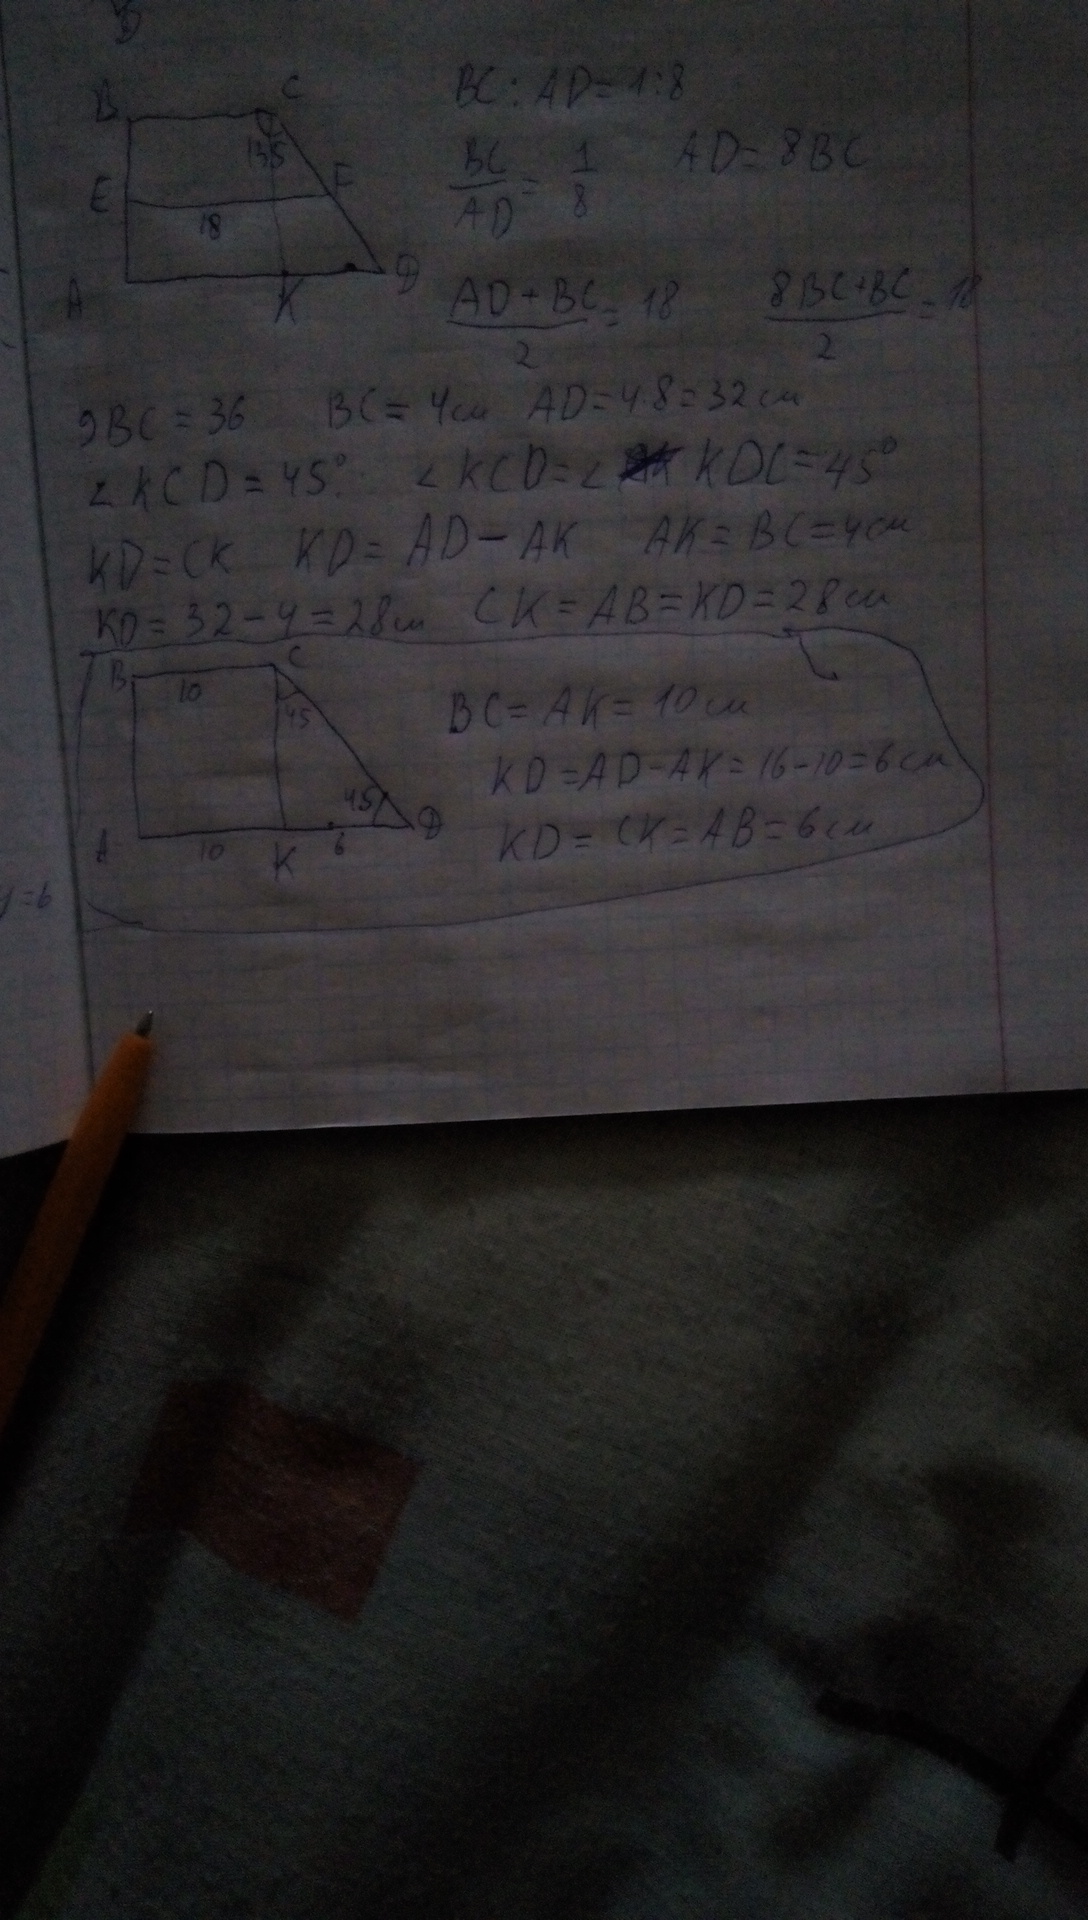 B
B C
135
E F
18
A K D
BC : AD = 1:8
BC/AD = 1/8 AD = 8BC
AD + BC/2 = 18 8BC+BC/2 = 18
9BC = 36 BC = 4см AD = 4·8 = 32см
∠KCD = 45°. ∠KCD = ∠ KDC = 45°
KD = CK KD = AD - AK AK = BC = 4см
KD = 32 - 4 = 28см CK = AB = KD = 28см
B 10 C
45
45
A 10 K 6 D
BC = AK = 10см
KD = AD - AK = 16-10 = 6см
KD = CK = AB = 6см
=6